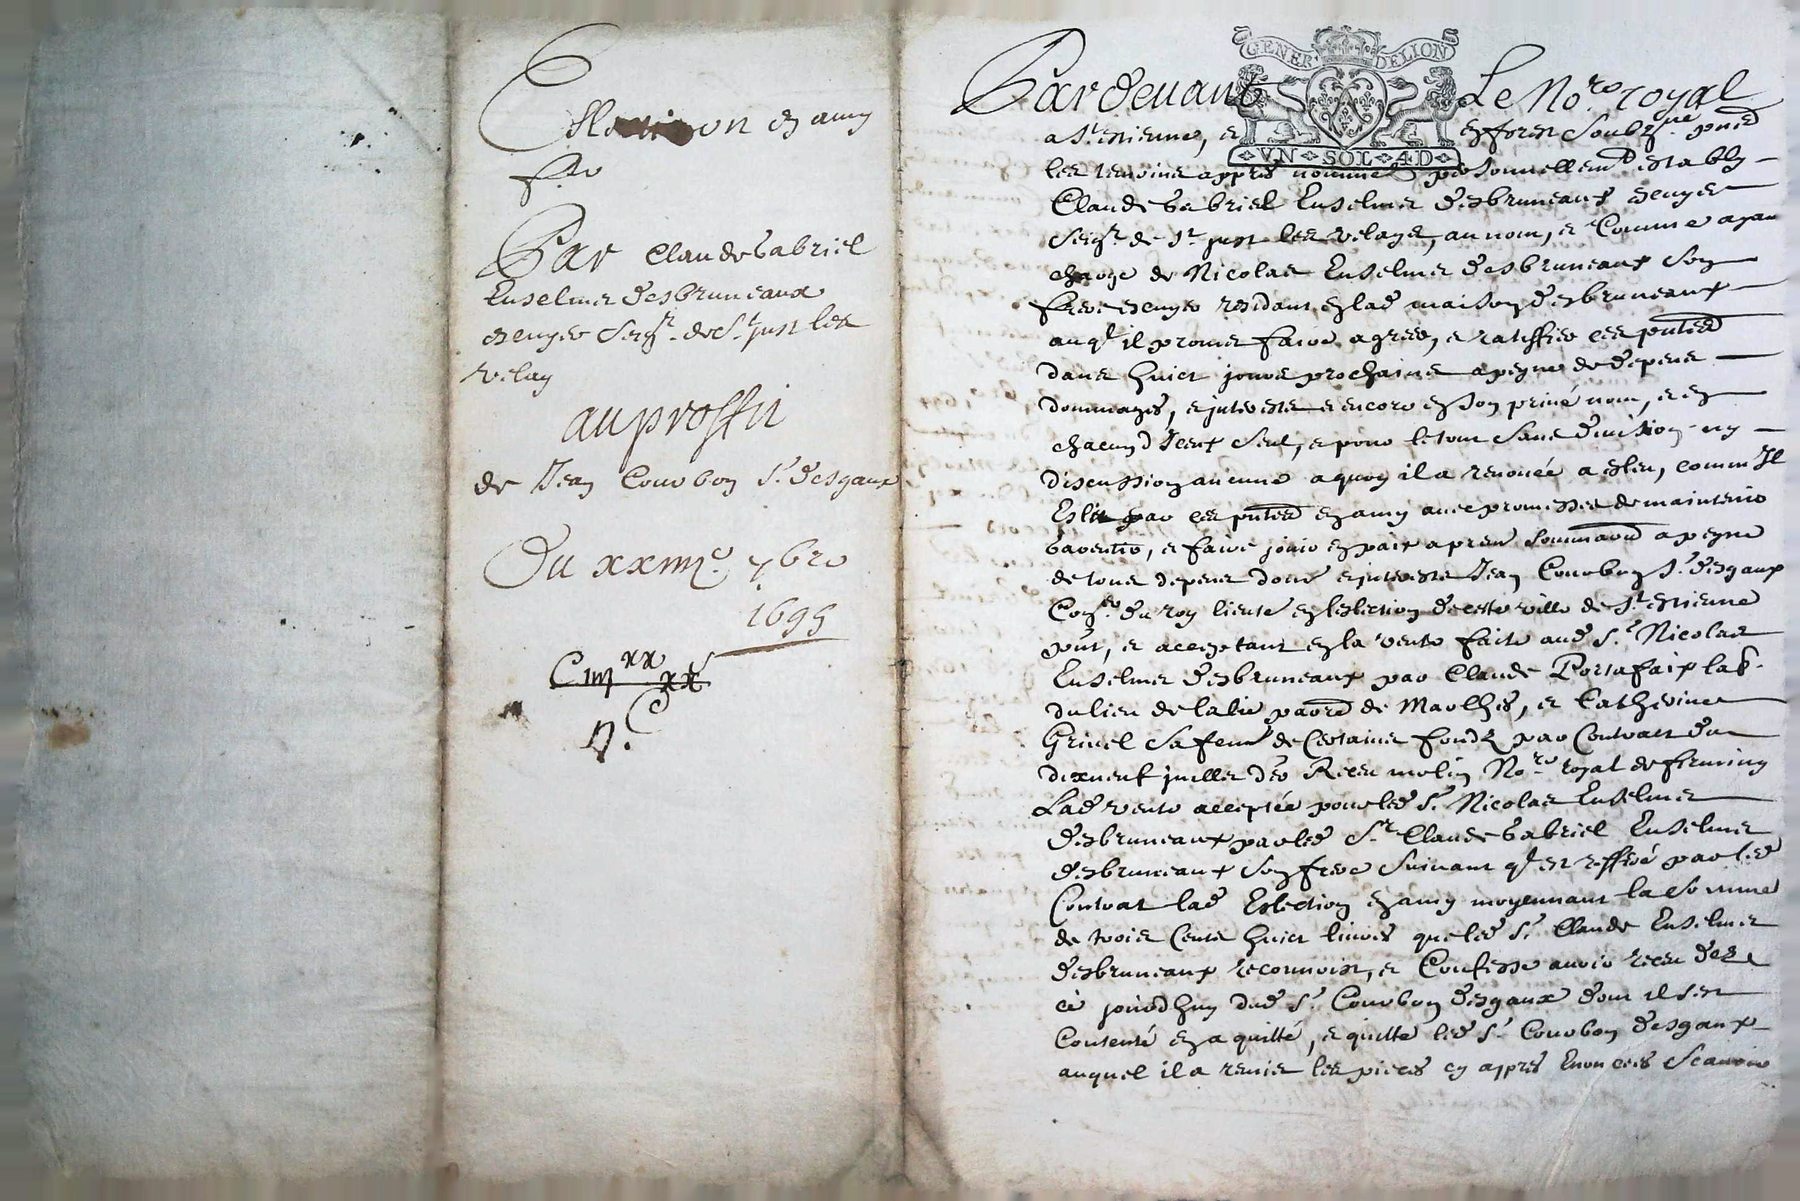 Eslection en amy
fte
Par Claude Gabriel
Enselmes desbruneaux
escuyer Seigr. de St just les
velay
au proffit
de Jean Courbon Sr desgaux
Du xxiiiie. 7bre
1695
GENER DELION
VN SOL AD
Pardevant Le Nore. royal
a St. estienne, en forest soubzne. pnts
les tesmoins appres nommes personnellemt estably
Claude Gabriel Enselmes desbruneaux escuyer
Seigr. de St. just les velays, au nom, et Comme ayant
charge de Nicolas Enselmes desbruneaux son
frere escuyer residant en lad maison desbruneaux
auql il promet faire agreer, et ratiffier ces pntes
dans huict jours prochains a peyne de depens
dommages, et interests et encore en son privé nom, et en
chacun d'Iceux seul, et pour le tout sans division ny
discussion aucune a quoy il a renoncé a esleu, comm'Il
Eslit par ces pntes en amy avec promesses de maintenir
garentir, et faire jouir en paix a peyne
de tous depens dom et interests Jean Courbon Sr. desgaux
Coner du roy lieute en leslection de cette ville de St estienne
pnt, et acceptant en la vente faite aud Sr. Nicolas
Enselmes desbruneaux par Claude Portafaix lab.
du lieu de la paroe de Marlhes, et Catherine
Grivel sa feme de Certains fonds par Contract du
dixneuf juillet der Receu molin Nore royal de firminy
Lad vente acceptée pour led Sr. Nicolas Enselmes
desbruneaux par led Sr. Claude Gabriel Enselmes
desbruneaux son frere suivant ql est par led
Contrat lad Eslection en amy moyennant la somme
de trois Cents huict livres que led Sr. Claude Enselmes
desbruneaux reconnoist, et Confesse avoir receu
ce jourdhuy dud Sr. Courbon desgaux dont il s'est
Contenté en a quitté, et quitte led Sr. Courbon desgaux
auquel il a remis les pieces cy appres Enoncees Scavoir